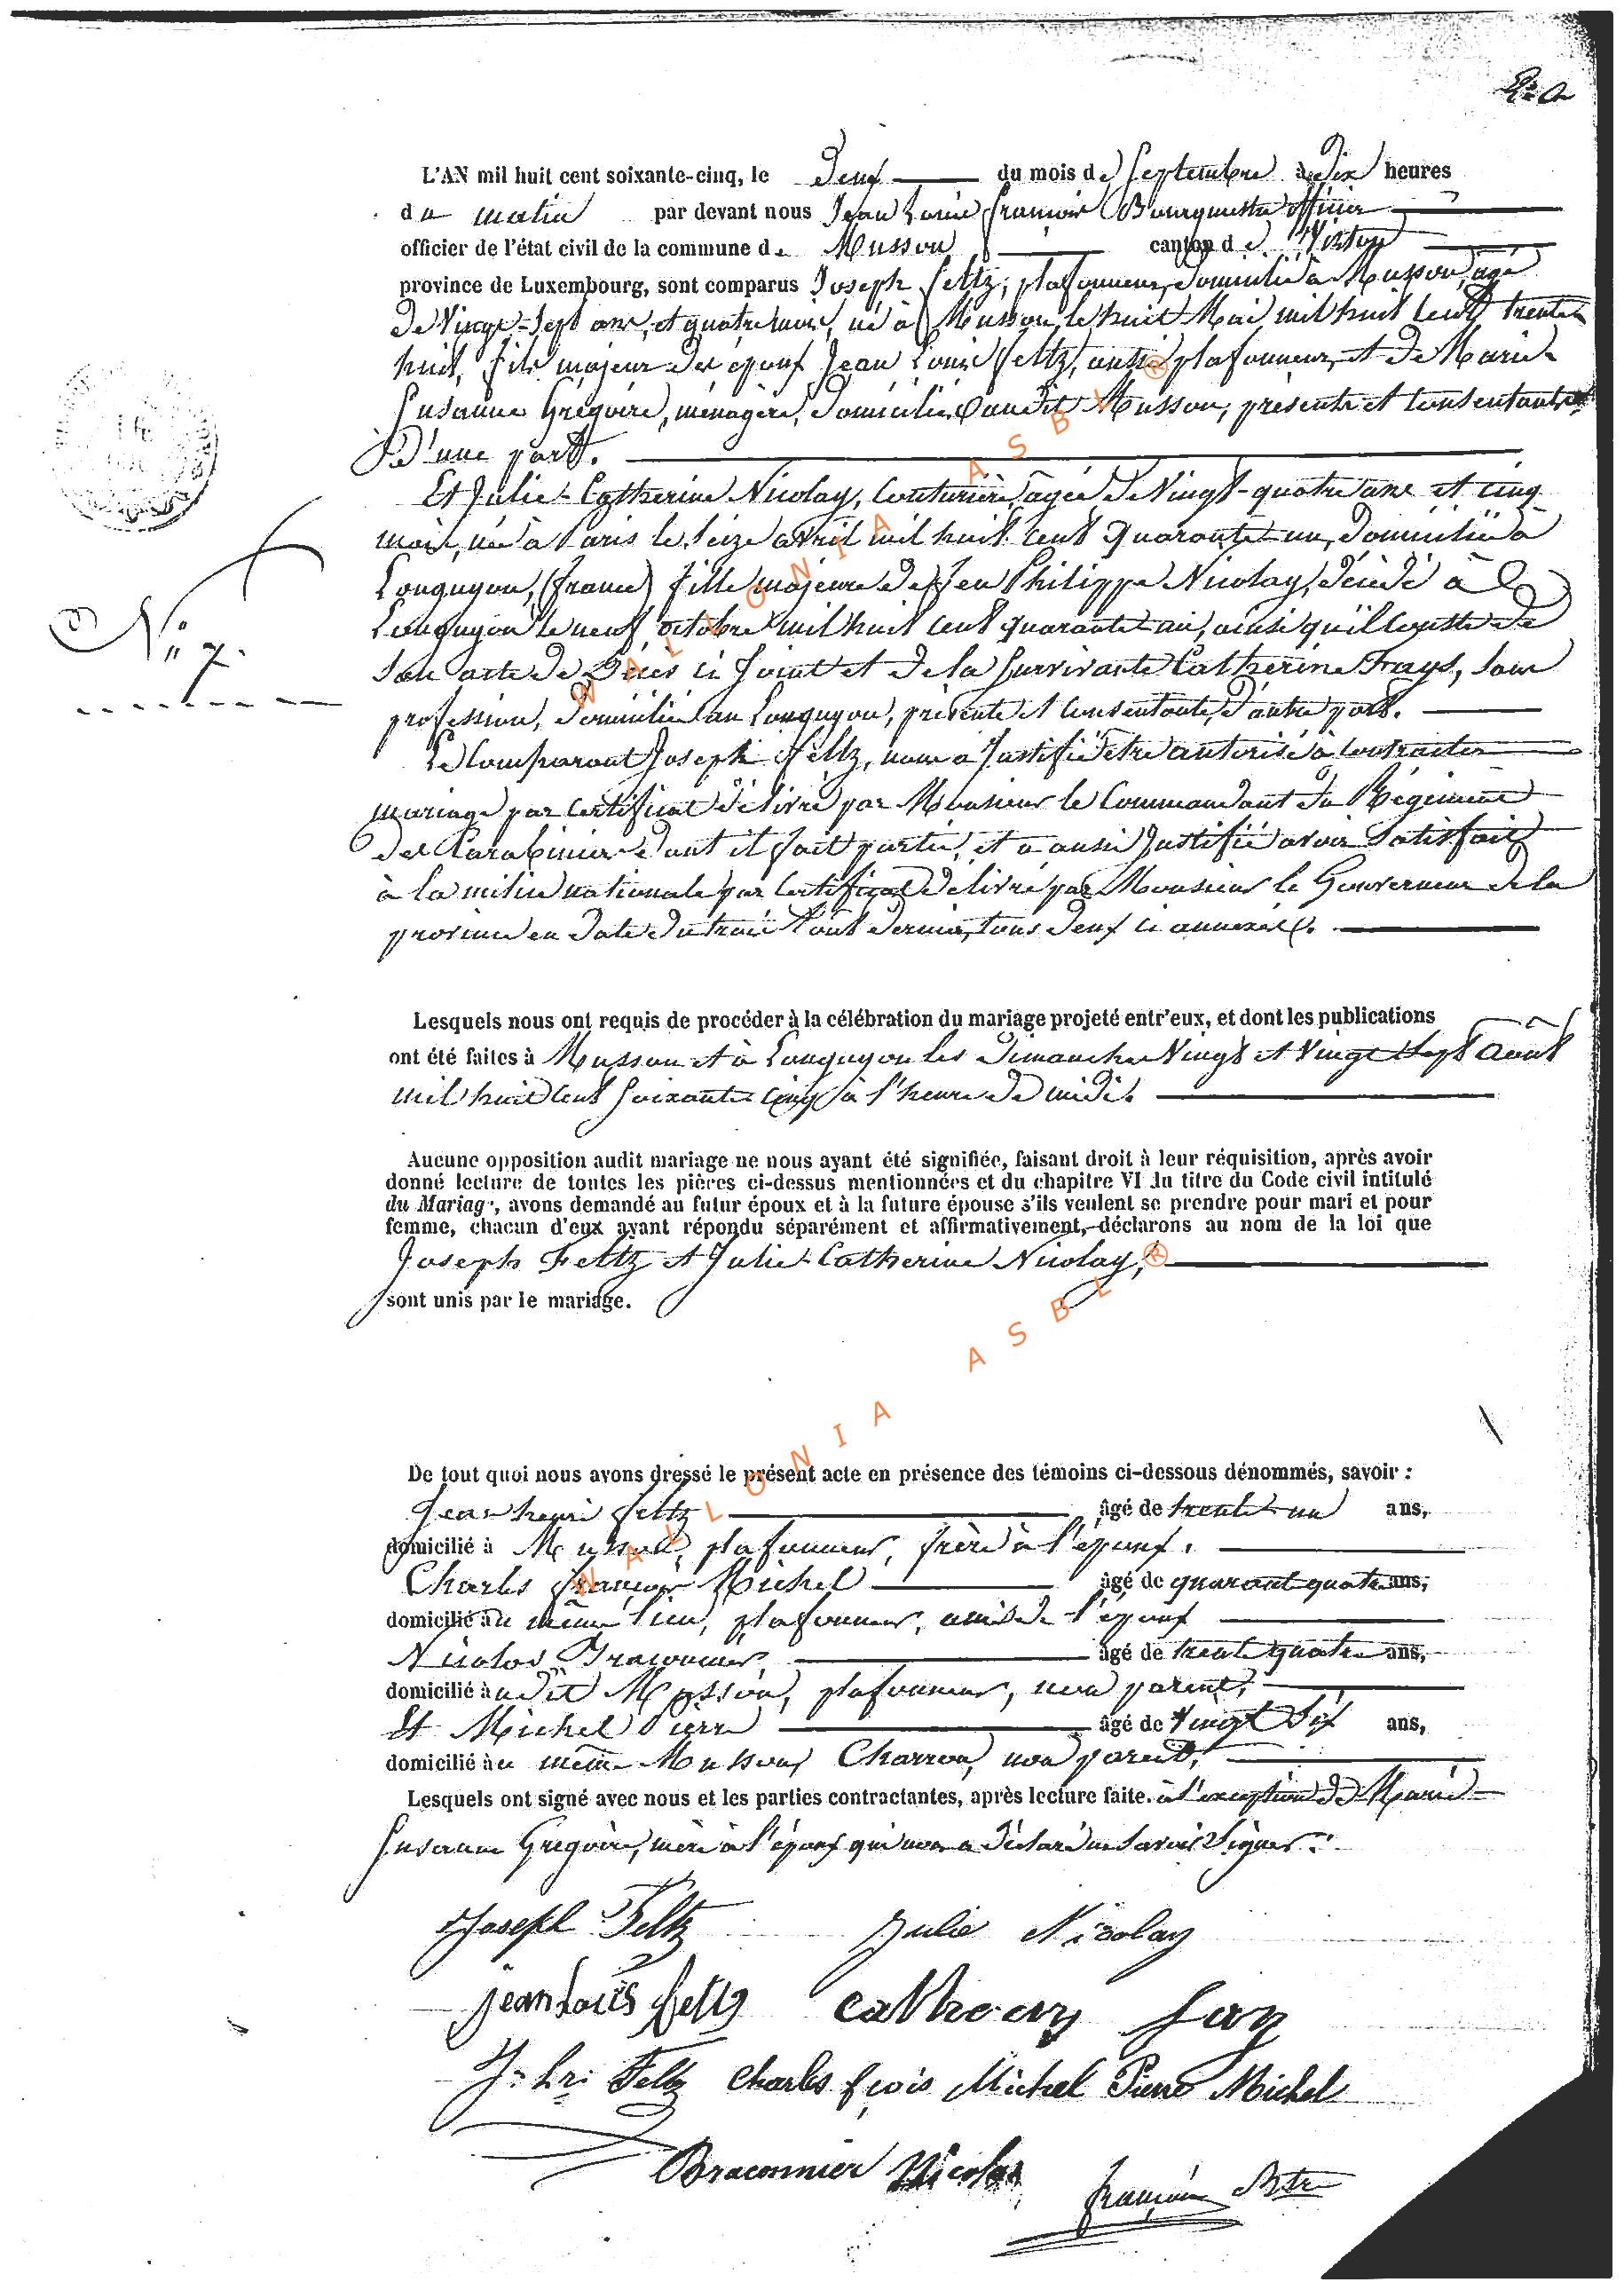 L'AN mil huit cent soixante-cinq, le Deux du mois de Septembre à Dix heures
du matin par devant nous Jean Louis François Bourguestre officier
officier de l'état civil de la commune de Musson canton de Virton
province de Luxembourg, sont comparus Joseph Feltz, plafonneur, domicilié à Musson, agé
de Vingt-Sept ans, et quatre mois, né à Musson, le huit Mai mil huit cent trente
huit, fils majeur des époux Jean Louis Feltz, aussi plafonneur, et de Marie
Susanne Grégoire, ménagère, domiciliés audit Musson, présents et consentants
D'une part.
Et Julie-Catherine Nicolay, Couturière, agée de Vingt-quatre ans et cinq
mois, née à Paris le Seize avril mil huit cent quarante-un, domiciliée à
Longuyon, (france) fille majeure de feu Philippe Nicolay, décédé à
Longuyon le neuf octobre mil huit cent quarante un, ainsi qu'il conste de
son acte de Décès ci Joint et de la Survivante Catherine Frays, sans
profession, domiciliée au Longuyon, présente et consentante, d'autre part.
Le Comparant Joseph Feltz, nous a Justifié être autorisé à Contracter
mariage par certificat délivré par Monsieur le Commandant du Régiment
des Carabiniers dont il fait partie, et a aussi Justifié avoir Satisfait
à la milice nationale par certificat délivré par Monsieur le Gouverneur de la
province en date du trois Août dernier, tous deux ci annexés.
N° 7.
Lesquels nous ont requis de procéder à la célébration du mariage projeté entr'eux, et dont les publications
ont été faites à Musson et à Longuyon les Dimanches Vingt et Vingt Sept Août
mil huit cent Soixante cinq à l'heure de midi.
Aucune opposition audit mariage ne nous ayant été signifiée, faisant droit à leur réquisition, après avoir
donné lecture de toutes les pièces ci-dessus mentionnées et du chapitre VI du titre du Code civil intitulé
du Mariage, avons demandé au futur époux et à la future épouse s'ils veulent se prendre pour mari et pour
femme, chacun d'eux ayant répondu séparément et affirmativement, déclarons au nom de la loi que
Joseph Feltz et Julie-Catherine Nicolay,
sont unis par le mariage.
De tout quoi nous avons dressé le présent acte en présence des témoins ci-dessous dénommés, savoir :
Jean henri Feltz âgé de trente-un ans,
domicilié à Musson, plafonneur, frère à l'époux.
Charles françois Michel âgé de quarant quatre ans,
domicilié au même lieu, plafonneur, ami de l'époux
Nicolas Braconnier, âgé de trent quatre ans,
domicilié audit Musson, plafonneur, non parent,
Et Michel Pierre âgé de Vingt Six ans,
domicilié au même Musson, Charron, non parent,
Lesquels ont signé avec nous et les parties contractantes, après lecture faite. à l'exception de Marie
Susanne Grégoire, mère à l'époux qui nous a déclaré ne savoir Signer.
Joseph Feltz Julie Nicolay
jean Louis feltz Catherein fay
J: hri Feltz Charles fçois Michel Pierre Michel
Braconnier Nicolas
françois Btre
WALLONIA ASBL ®
WALLONIA ASBL ®